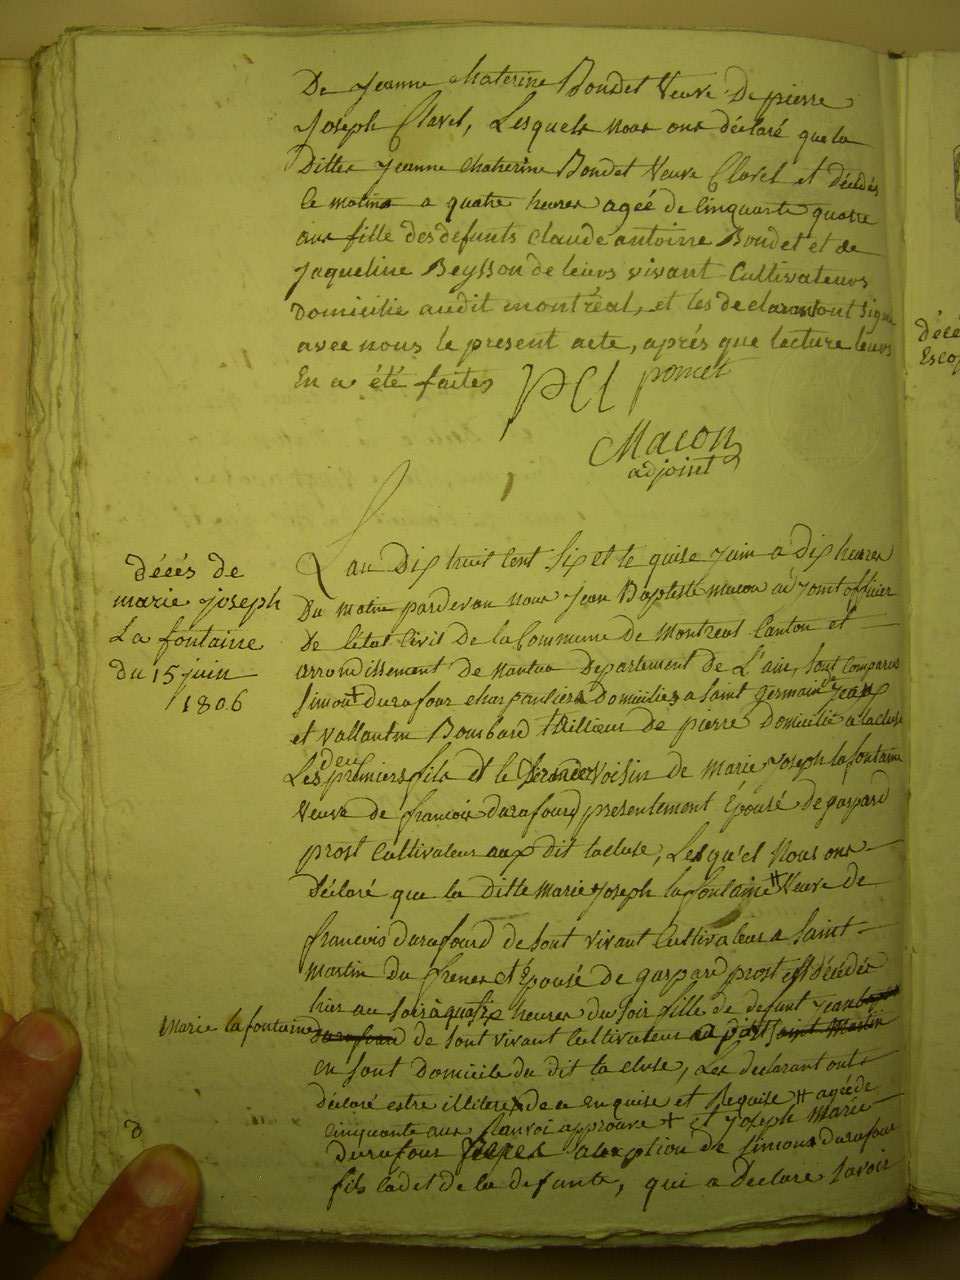 De Jeanne Chaterine Bondet Veuve De pierre
Joseph Clavel, Lesquels nous ons déclaré que la
Ditte Jeanne Chatherine Bondet Veuve Clavel et décédés
Ce matins a quatre heures agéé de Cinquante quatre
ans fille des defunts Claude antoine Bondet et de
Jaqueline Beysson de leurs vivant Cultivateurs
Domicilié audit montréal, et les declarant ont Signé
avec nous le present acte, aprés que lecture leurs
En a été faites
PCl poncet
Macon
adjoint
décés de
marie joseph
La fontaine
du 15 juin
1806
Lan Dix huit Cent Six et le quise Juin a Dix heures
Du matin pardevan nous Jean Baptiste macon adjoint officier
De l'état Civil de la Commune de Montreal Canton et
arrondissement de nantua Departement de L'ain, sont Comparus
Simon + durafour charpantiers Domiciliés a Saint germain de Joux
et vallantin Bombard tallieur de pierre Domicilié a la cluse
Les deu premiers fils et le Voisin de Marie Joseph la fontaine
Veuve de francois durafourd presentement Epousé de gaspard
prost Cultivateur aux dit la cluse, Lesqu'el Nous ons
Déclaré que la ditte Marie Joseph la fontaine # Veuve de
francois durafourd de sont vivant Cultivateur a Saint
Martin du frenes et Epousé de gaspard prost est décédés
hier au Soir à quatre heures du soir fille de defunt Jean
Marie la fontaine
de sont vivant Cultivateur Saint Martin
en sont domicile du dit la cluse, Les declarant ont
déclaré estre illiteré de ce enquise et Requise # agéé de
Cinquante ans Ranvoi approuve + et Joseph Marie
durafour freres a lexption de Simon durafour
fils Cadet de la defunte, qui a Declare Savoir